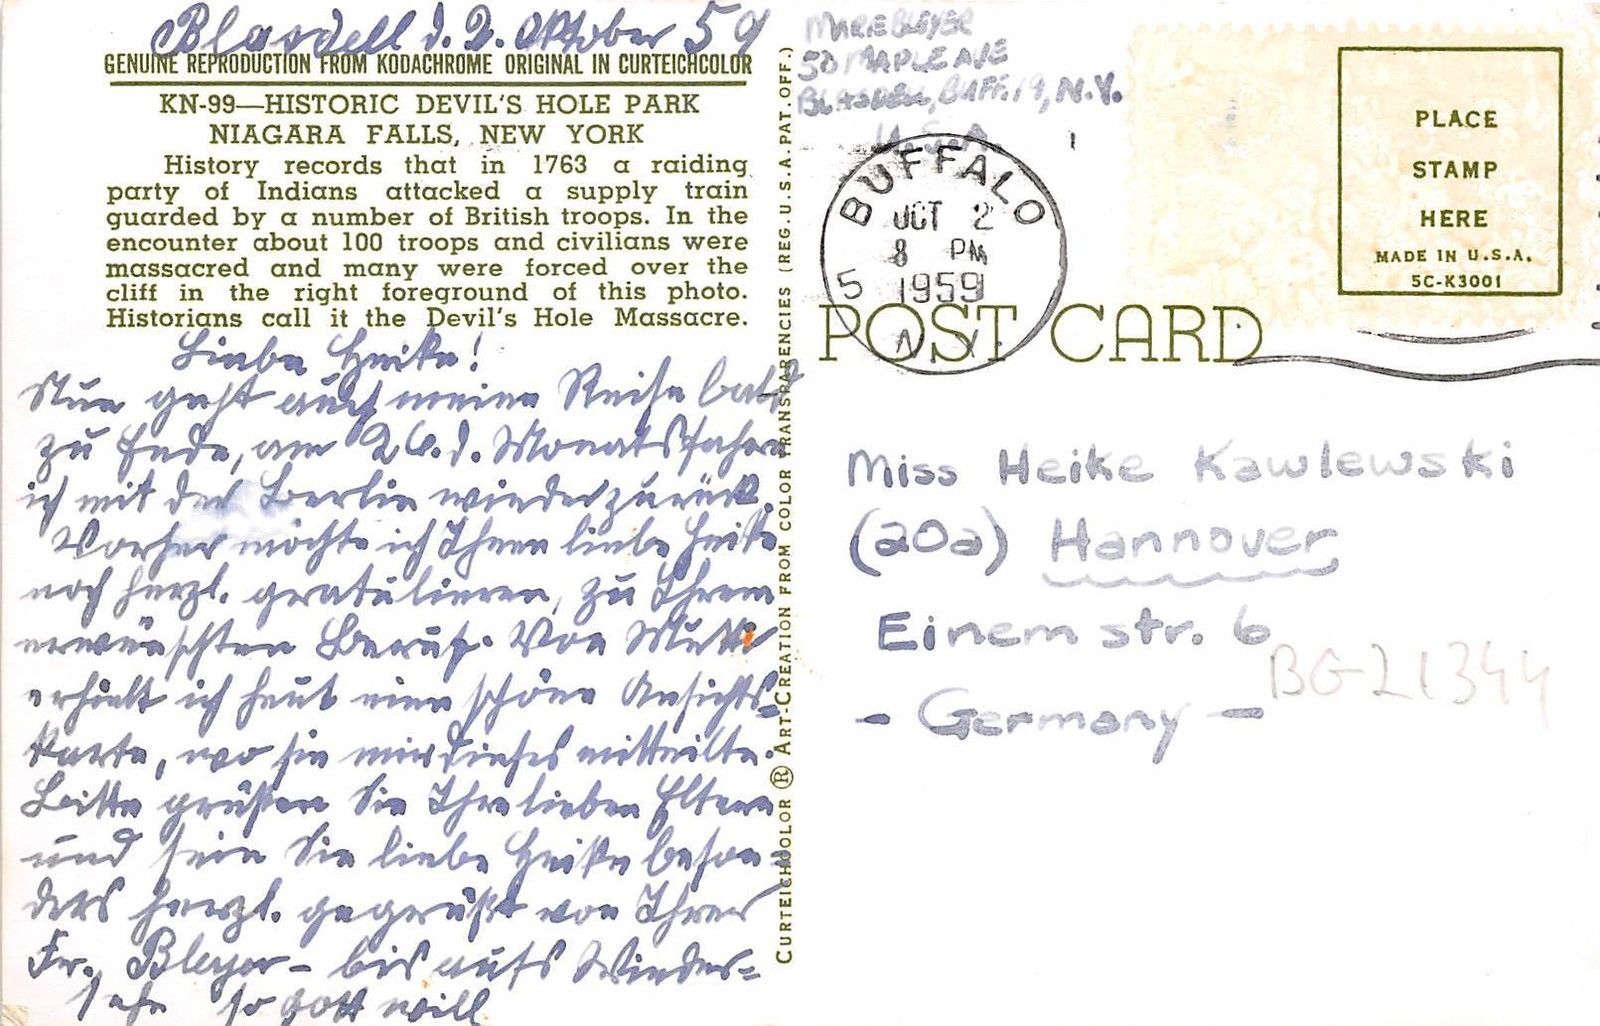 Blasdell d. 2. Oktober 59
GENUINE REPRODUCTION FROM KODACHROME ORIGINAL IN CURTEICHCOLOR
KN-99—HISTORIC DEVIL'S HOLE PARK
NIAGARA FALLS, NEW YORK
History records that in 1763 a raiding
party of Indians attacked a supply train
guarded by a number of British troops. In the
encounter about 100 troops and civilians were
massacred and many were forced over the
cliff in the right foreground of this photo.
Historians call it the Devil's Hole Massacre.
Liebe Heike!
Nun geht auch meine Reise bald
zu Ende, am 26. d. Monats fahre
ich mit der Berlin wieder zurück.
Vorher möchte ich Ihnen liebe Heike
noch herzl. gratulieren, zu Ihrem
erwünschten Beruf. Von Mutti
erhielt ich heut eine schöne Ansichts-
karte, wo sie mir dieses mitteilte.
Bitte grüßen Sie Ihre lieben Eltern
und sein Sie liebe Heike beson=
ders herzl. gegrüßt von Ihrer
Fr. Bleyer - bis aufs Wieder=
sehn so Gott will
CURTEICHCOLOR ® ART-CREATION FROM COLOR TRANSPARENCIES (REG. U.S.A. PAT. OFF.)
MARIE BLEYER
50 MAPLE AVE
BLASDELL, BUFF. 19, N.Y.
U.S.A.
BUFFALO
OCT 2
8 PM
5 1959
N.Y.
PLACE
STAMP
HERE
MADE IN U.S.A.
5C-K3001
POST CARD
Miss Heike Kawlewski
(20a) Hannover
Einem str. 6
BG21344
- Germany -